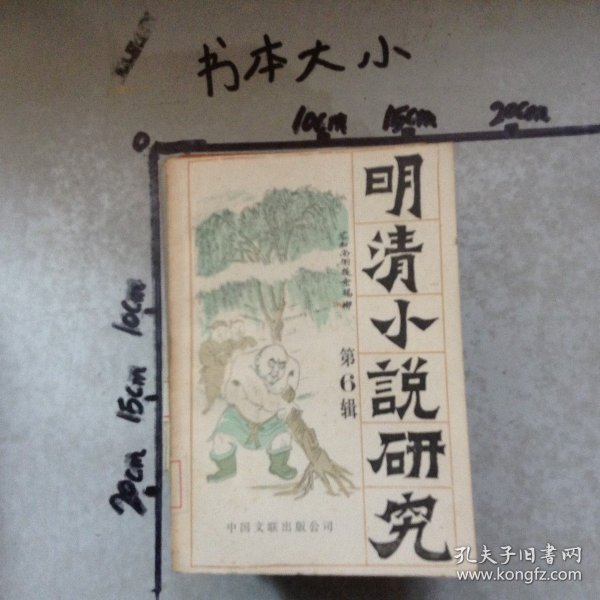 书本大小
0
10cm
15cm
20cm
10cm
15cm
20cm
明清小説研究
第6辑
中国文联出版公司
孔夫子旧书网
www.kongfz.com